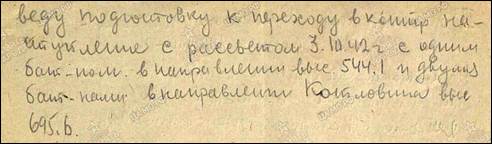 веду подготовку к переходу в контр на-
ступление с рассветом 3.10.42 г с одним
бат-ном. в направлении выс. 544.1 и двумя
бат-нами в направлении Котловина выс
695.6.